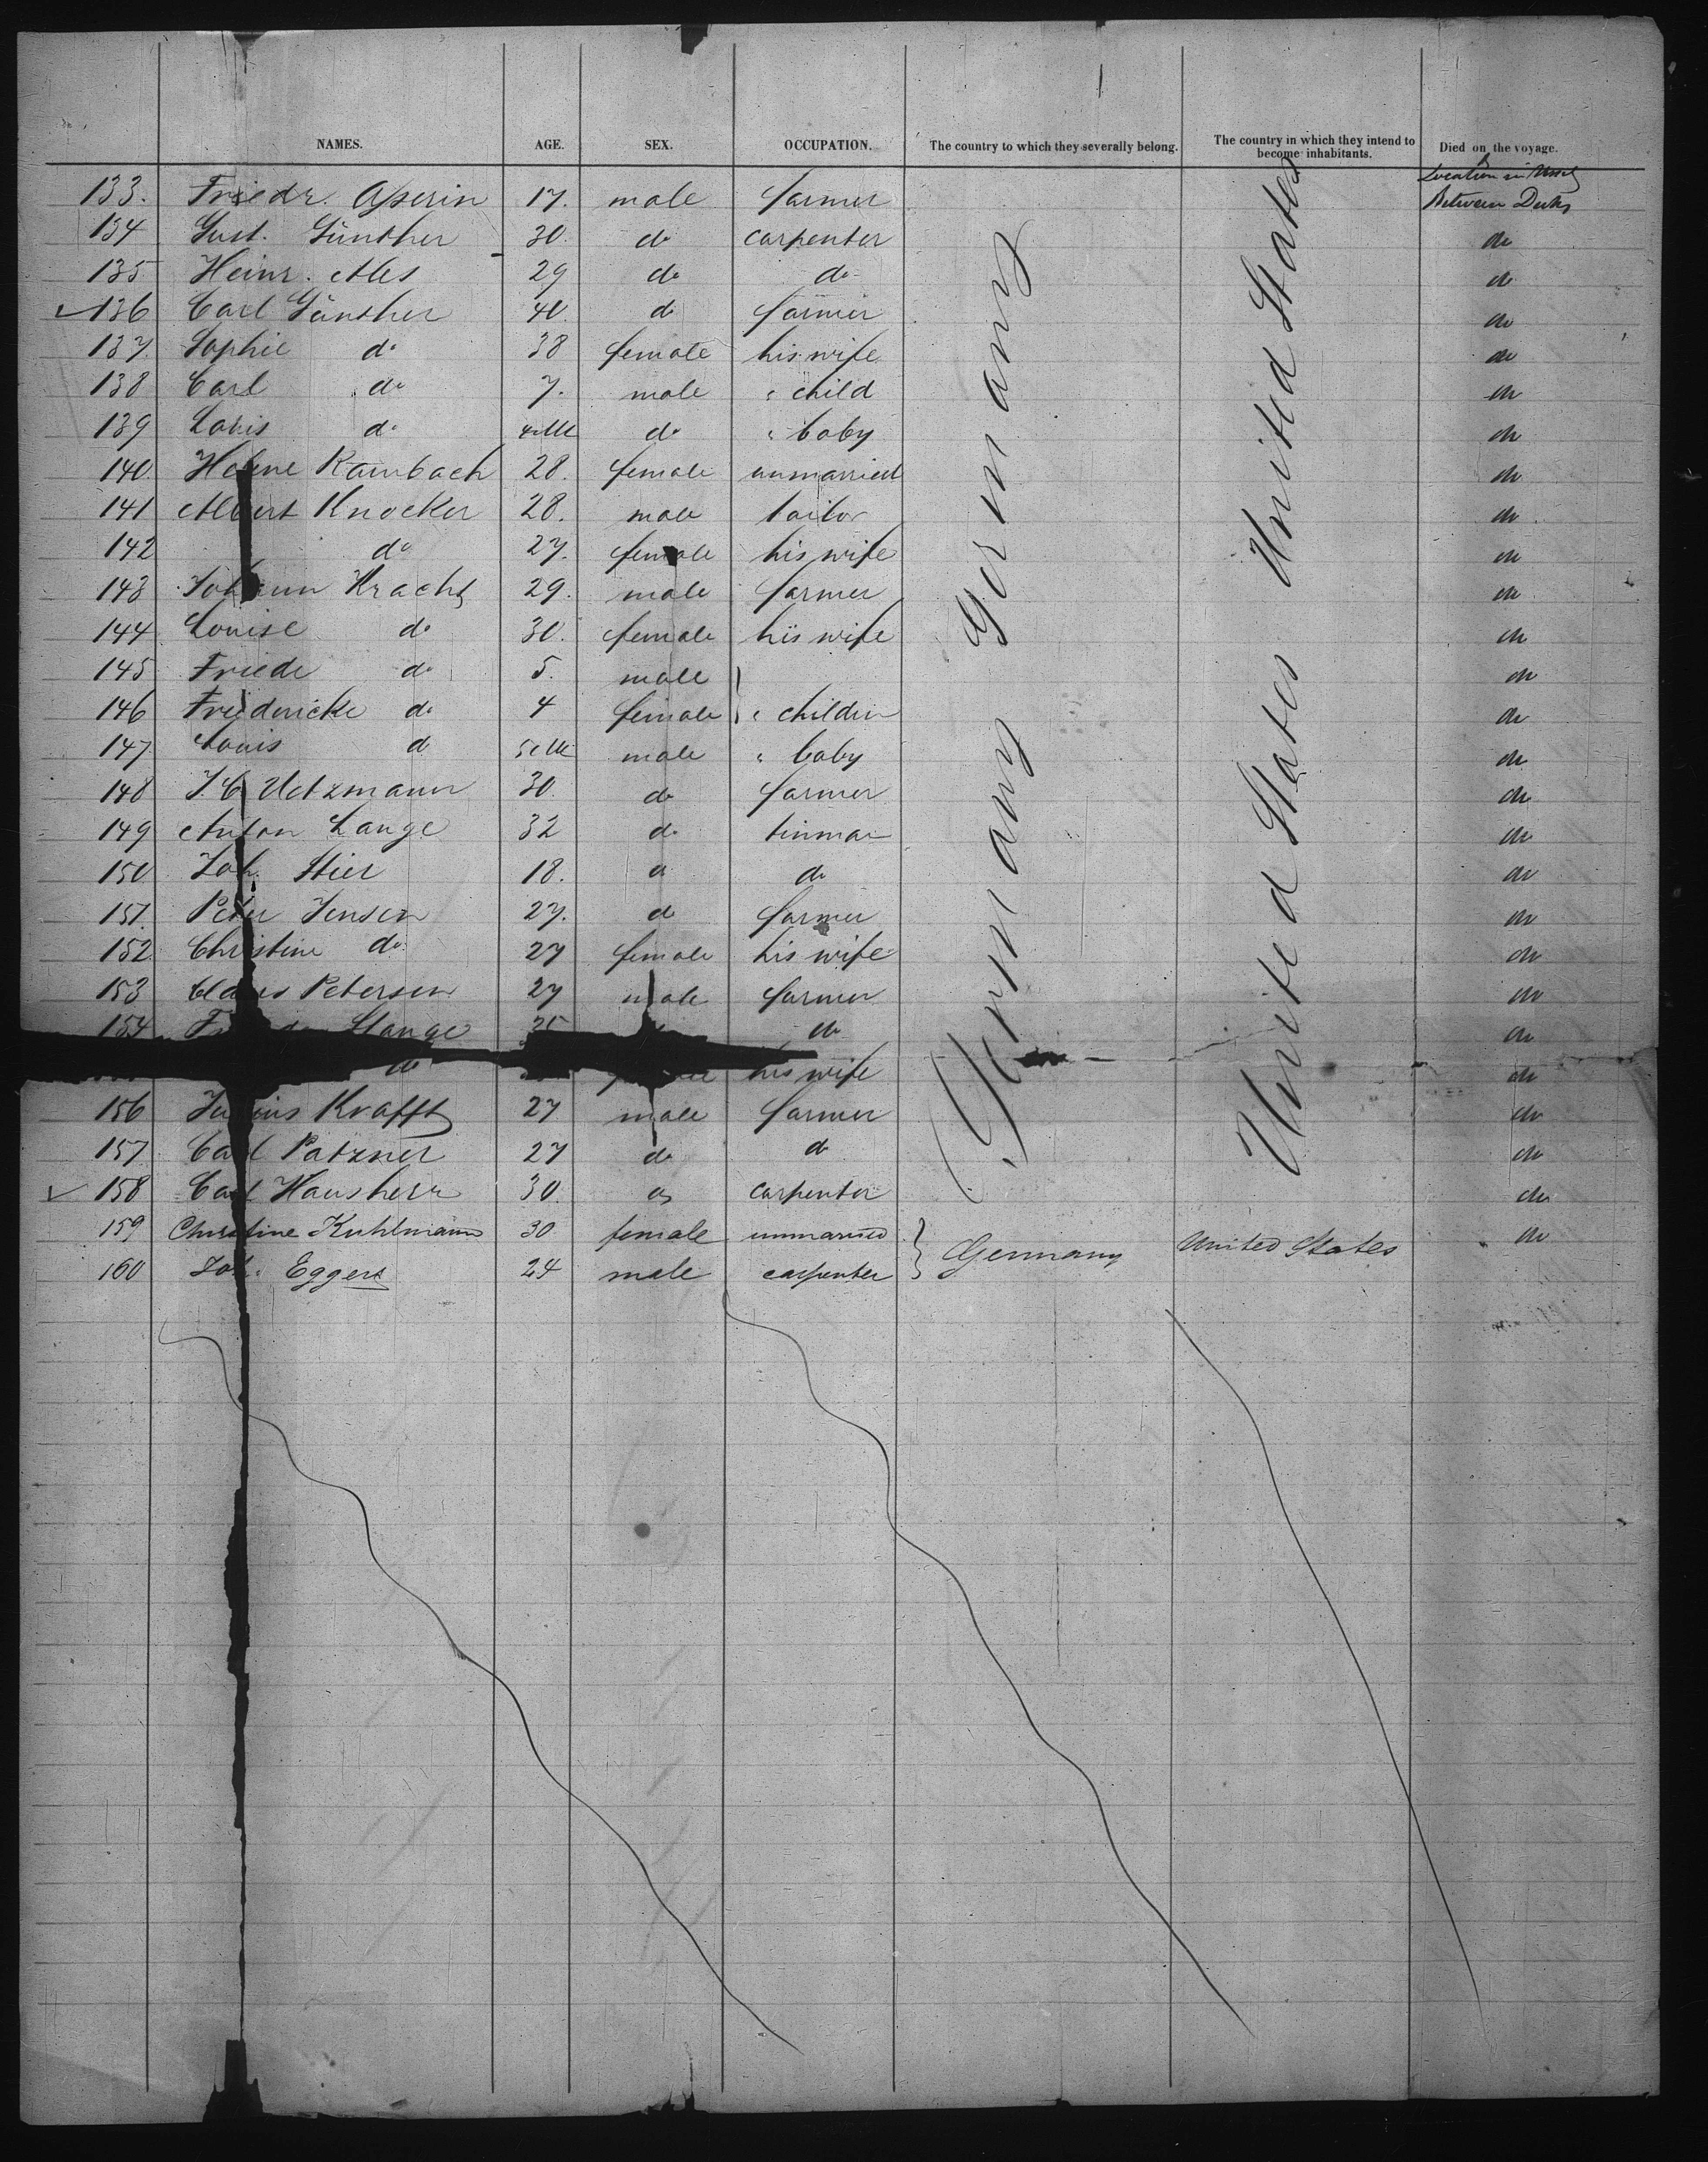 NAMES. AGE. SEX. OCCUPATION. The country to which they severally belong. The country in which they intend to become inhabitants. Died on the voyage.
Location in Vessel
133. Friedr. Asperin 17. male farmer Between Decks
134 Gust. Günther 30. do carpenter do
135 Heinr. Ales 29 do do do
136 Carl Günther 40. do farmer do
137. Sophie do 38 female his wife do
138 Carl do 7. male " child do
139 Louis do 4 M do " baby do
140. Helene Rambach 28. female unmarried do
141 Albert Knocker 28. male tailor do
142 do 27. female his wife do
143 Johann Kracht 29. male farmer do
144 Louise do 30. female his wife do
145 Friede do 5. male do
146 Friedericke do 4 female " children do
147 Louis do 5 M male " baby do
148 J. C. Uetzmann 30. do farmer do
149 Anton Lange 32 do tinman do
150 Joh. Stier 18. do do do
151. Peter Jensen 27. do farmer do
152. Christine do 27 female his wife do
153 Claus Petersen 27 male farmer do
154 Stange 35 do do
do his wife do
156 Julius Krafft 27 male farmer do
157 Carl Patzner 27 do do do
158 Carl Hausherr 30. do carpenter do
159 Christine Kuhlmann 30 female unmarried do
160 Joh. Eggers 24 male carpenter Germany United States
Germany Germany
United States United States